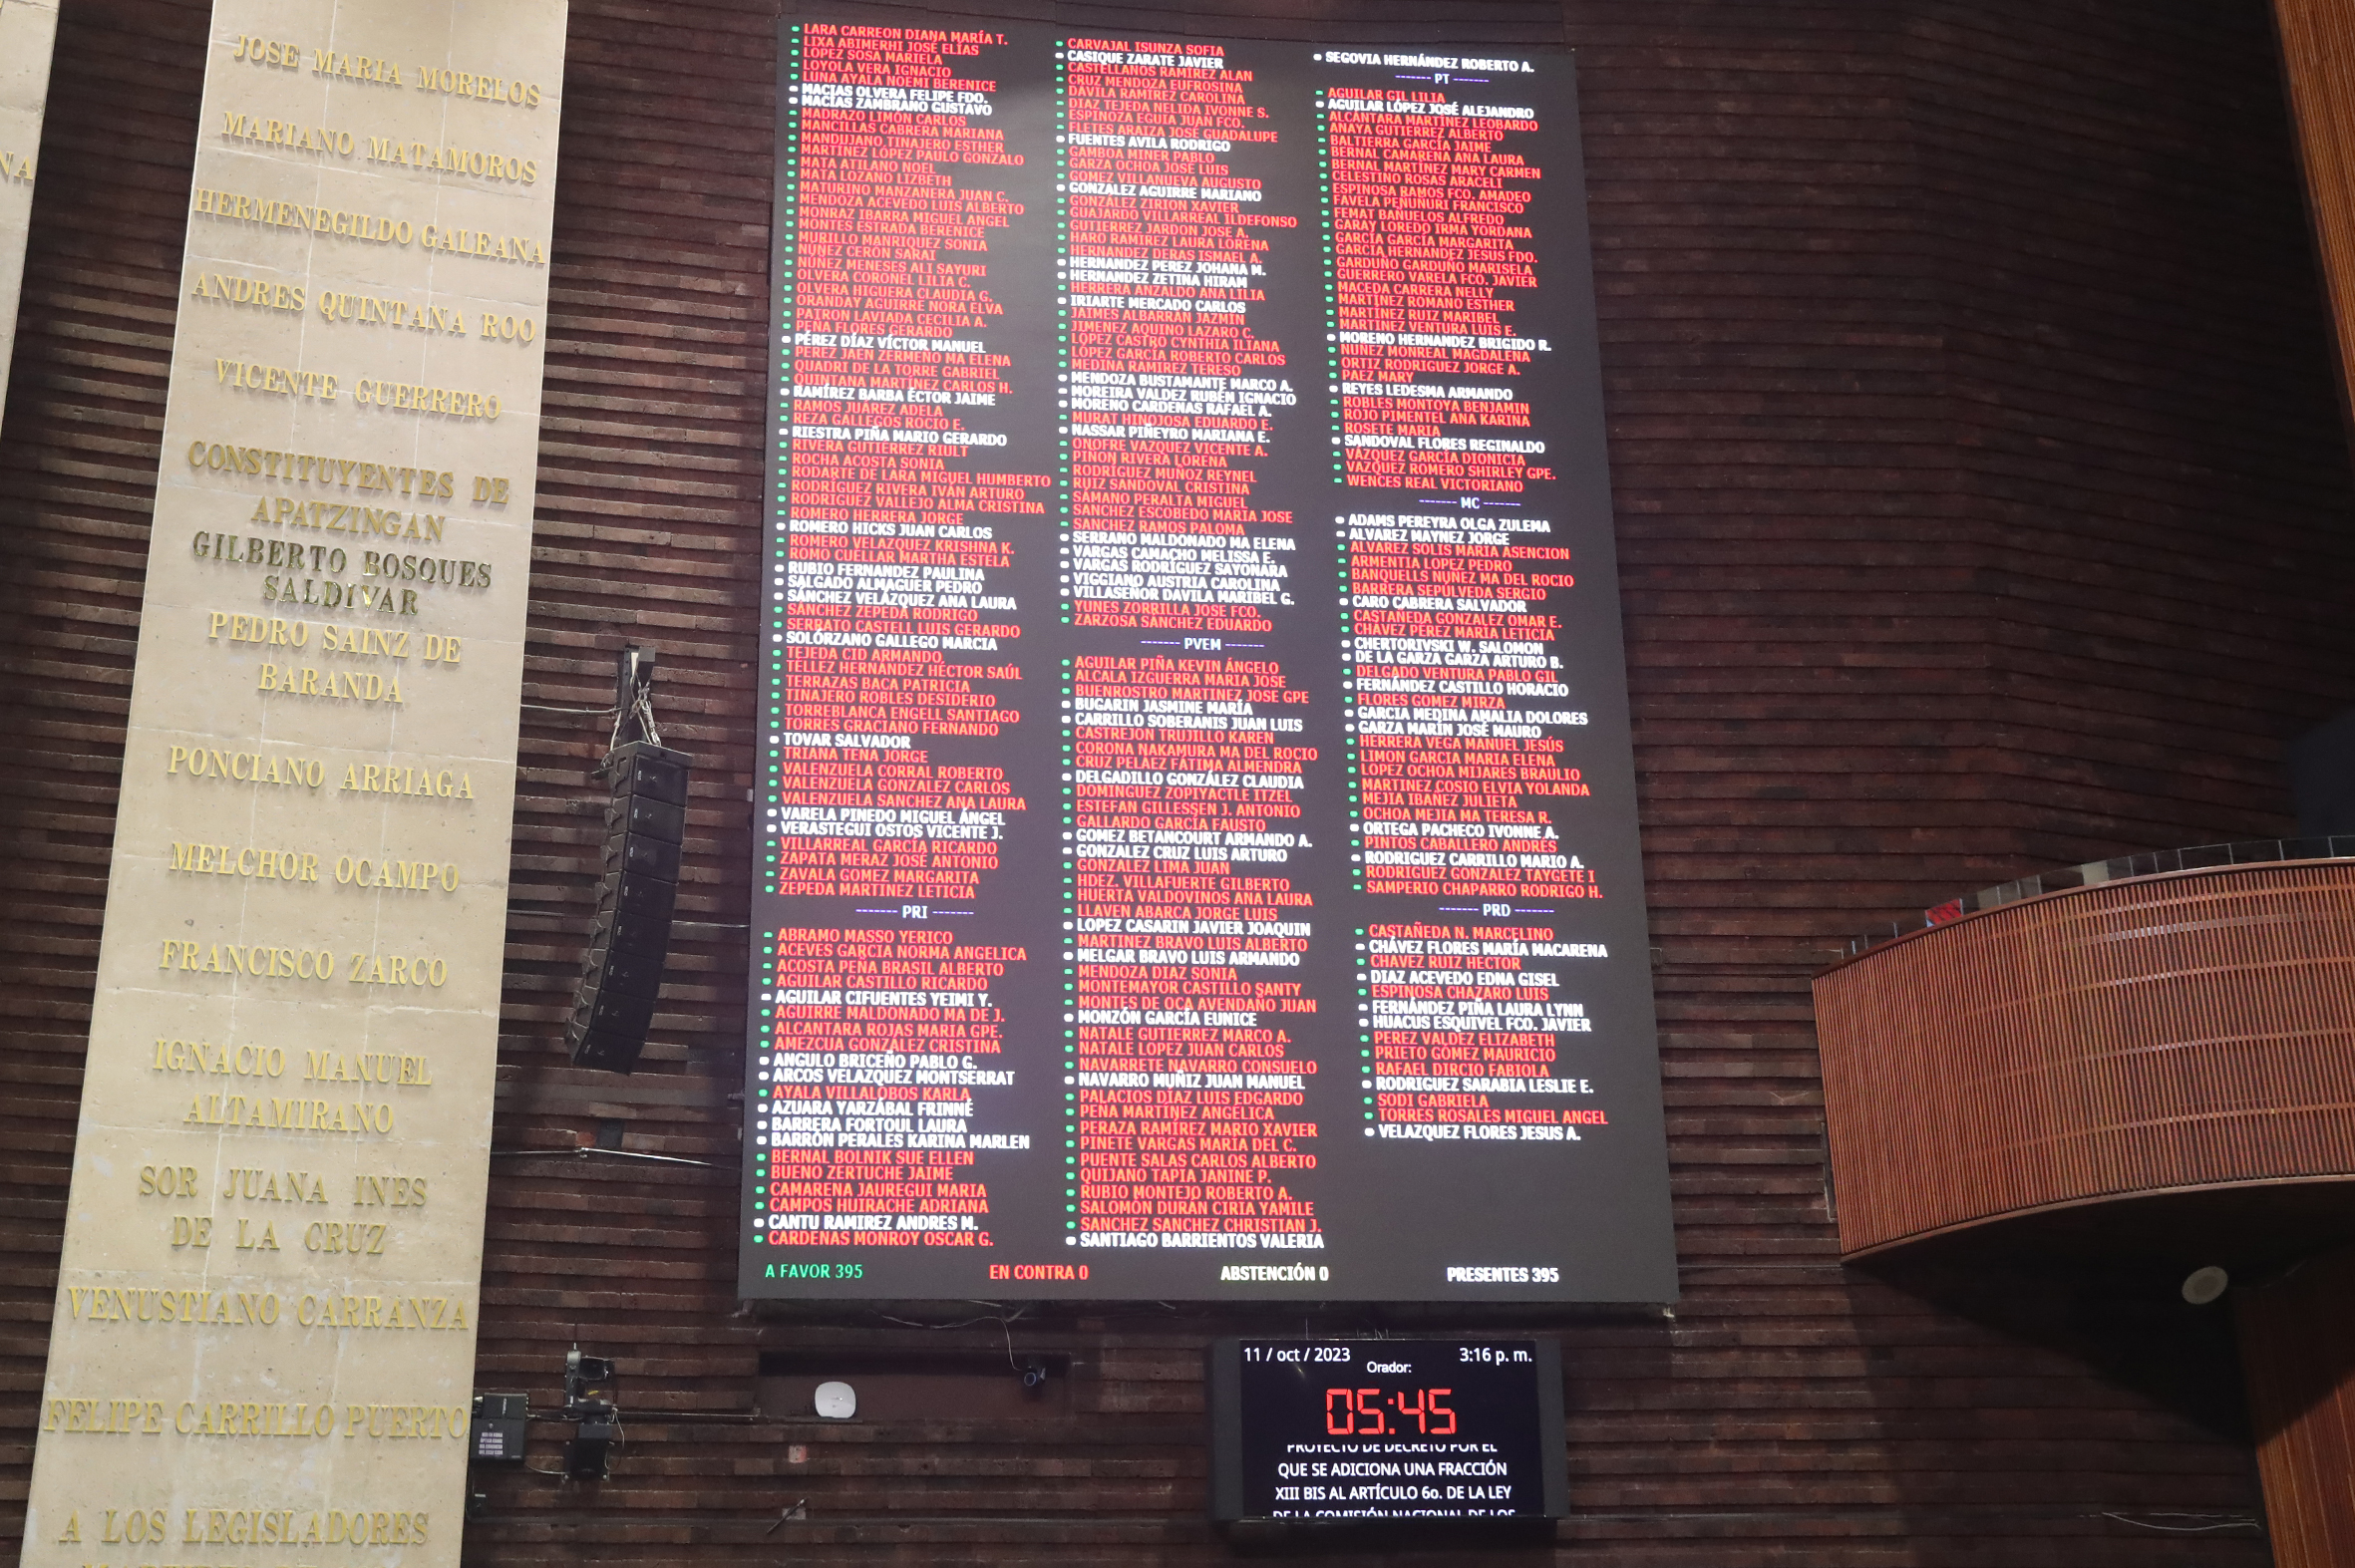 NA
JOSE MARIA MORELOS
MARIANO MATAMOROS
HERMENEGILDO GALEANA
ANDRES QUINTANA ROO
VICENTE GUERRERO
CONSTITUYENTES DE
APATZINGAN
GILBERTO BOSQUES
SALDIVAR
PEDRO SAINZ DE
BARANDA
PONCIANO ARRIAGA
MELCHOR OCAMPO
FRANCISCO ZARCO
IGNACIO MANUEL
ALTAMIRANO
SOR JUANA INES
DE LA CRUZ
VENUSTIANO CARRANZA
FELIPE CARRILLO PUERTO
A LOS LEGISLADORES
LARA CARREON DIANA MARÍA T.
LIXA ABIMERHI JOSÉ ELÍAS
LOPEZ SOSA MARIELA
LOYOLA VERA IGNACIO
LUNA AYALA NOEMI BERENICE
MACIAS OLVERA FELIPE FDO.
MACÍAS ZAMBRANO GUSTAVO
MADRAZO LIMÓN CARLOS
MANCILLAS CABRERA MARIANA
MANDUJANO TINAJERO ESTHER
MARTINEZ LOPEZ PAULO GONZALO
MATA ATILANO NOEL
MATA LOZANO LIZBETH
MATURINO MANZANERA JUAN C.
MENDOZA ACEVEDO LUIS ALBERTO
MONRAZ IBARRA MIGUEL ANGEL
MONTES ESTRADA BERENICE
MURILLO MANRIQUEZ SONIA
NUÑEZ CERON SARAI
NÚÑEZ MENESES ALI SAYURI
OLVERA CORONEL LILIA C.
OLVERA HIGUERA CLAUDIA G.
ORANDAY AGUIRRE NORA ELVA
PATRON LAVIADA CECILIA A.
PEÑA FLORES GERARDO
PÉREZ DÍAZ VÍCTOR MANUEL
PEREZ JAEN ZERMEÑO MA ELENA
QUADRI DE LA TORRE GABRIEL
QUINTANA MARTINEZ CARLOS H.
RAMÍREZ BARBA ÉCTOR JAIME
RAMOS JUÁREZ ADELA
REZA GALLEGOS ROCIO E.
RIESTRA PIÑA MARIO GERARDO
RIVERA GUTIERREZ RIULT
ROCHA ACOSTA SONIA
RODARTE DE LARA MIGUEL HUMBERTO
RODRÍGUEZ RIVERA IVÁN ARTURO
RODRIGUEZ VALLEJO ALMA CRISTINA
ROMERO HERRERA JORGE
ROMERO HICKS JUAN CARLOS
ROMERO VELAZQUEZ KRISHNA K.
ROMO CUELLAR MARTHA ESTELA
RUBIO FERNANDEZ PAULINA
SALGADO ALMAGUER PEDRO
SÁNCHEZ VELÁZQUEZ ANA LAURA
SÁNCHEZ ZEPEDA RODRIGO
SERRATO CASTELL LUIS GERARDO
SOLÓRZANO GALLEGO MARCIA
TEJEDA CID ARMANDO.
TÉLLEZ HERNÁNDEZ HÉCTOR SAÚL
TERRAZAS BACA PATRICIA
TINAJERO ROBLES DESIDERIO
TORREBLANCA ENGELL SANTIAGO
TORRES GRACIANO FERNANDO
TOVAR SALVADOR
TRIANA TENA JORGE
VALENZUELA CORRAL ROBERTO
VALENZUELA GONZALEZ CARLOS
VALENZUELA SANCHEZ ANA LAURA
VARELA PINEDO MIGUEL ÁNGEL
VERASTEGUI OSTOS VICENTE J.
VILLARREAL GARCÍA RICARDO
ZAPATA MERAZ JOSÉ ANTONIO
ZAVALA GOMEZ MARGARITA
ZEPEDA MARTINEZ LETICIA
------- PRI -------
ABRAMO MASSO YERICO
ACEVES GARCIA NORMA ANGELICA
ACOSTA PEÑA BRASIL ALBERTO
AGUILAR CASTILLO RICARDO
AGUILAR CIFUENTES YEIMI Y.
AGUIRRE MALDONADO MA DE J.
ALCANTARA ROJAS MARIA GPE.
AMEZCUA GONZÁLEZ CRISTINA
ANGULO BRICEÑO PABLO G.
ARCOS VELAZQUEZ MONTSERRAT
AYALA VILLALOBOS KARLA
AZUARA YARZÁBAL FRINNÉ
BARRERA FORTOUL LAURA
BARRÓN PERALES KARINA MARLEN
BERNAL BOLNIK SUE ELLEN
BUENO ZERTUCHE JAIME
CAMARENA JAUREGUI MARIA
CAMPOS HUIRACHE ADRIANA
CANTU RAMIREZ ANDRES M.
CARDENAS MONROY OSCAR G.
CARVAJAL ISUNZA SOFIA
CASIQUE ZARATE JAVIER
CASTELLANOS RAMIREZ ALAN
CRUZ MENDOZA EUFROSINA
DAVILA RAMIREZ CAROLINA
DIAZ TEJEDA NELIDA IVONNE S.
ESPINOZA EGUIA JUAN FCO.
FLETES ARAIZA JOSÉ GUADALUPE
FUENTES AVILA RODRIGO
GAMBOA MINER PABLO
GARZA OCHOA JOSÉ LUIS
GOMEZ VILLANUEVA AUGUSTO
GONZALEZ AGUIRRE MARIANO
GONZÁLEZ ZIRION XAVIER
GUAJARDO VILLARREAL ILDEFONSO
GUTIERREZ JARDON JOSE A.
HARO RAMIREZ LAURA LORENA
HERNANDEZ DERAS ISMAEL A.
HERNANDEZ PEREZ JOHANA M.
HERNANDEZ ZETINA HIRAM
HERRERA ANZALDO ANA LILIA
IRIARTE MERCADO CARLOS
JAIMES ALBARRAN JAZMIN
JIMENEZ AQUINO LAZARO C.
LOPEZ CASTRO CYNTHIA ILIANA
LÓPEZ GARCÍA ROBERTO CARLOS
MEDINA RAMIREZ TERESO
MENDOZA BUSTAMANTE MARCO A.
MOREIRA VALDEZ RUBÉN IGNACIO
MORENO CARDENAS RAFAEL A.
MURAT HINOJOSA EDUARDO E.
NASSAR PIÑEYRO MARIANA E.
ONOFRE VAZQUEZ VICENTE A.
PIÑON RIVERA LORENA
RODRÍGUEZ MUÑOZ REYNEL
RUIZ SANDOVAL CRISTINA
SÁMANO PERALTA MIGUEL
SANCHEZ ESCOBEDO MARIA JOSE
SANCHEZ RAMOS PALOMA
SERRANO MALDONADO MA ELENA
VARGAS CAMACHO MELISSA E.
VARGAS RODRÍGUEZ SAYONARA
VIGGIANO AUSTRIA CAROLINA
VILLASEÑOR DAVILA MARIBEL G.
YUNES ZORRILLA JOSE FCO.
ZARZOSA SÁNCHEZ EDUARDO
------- PVEM -------
AGUILAR PIÑA KEVIN ÁNGELO
ALCALA IZGUERRA MARIA JOSE
BUENROSTRO MARTINEZ JOSE GPE
BUGARIN JASMINE MARÍA
CARRILLO SOBERANIS JUAN LUIS
CASTREJÓN TRUJILLO KAREN
CORONA NAKAMURA MA DEL ROCIO
CRUZ PELÁEZ FÁTIMA ALMENDRA
DELGADILLO GONZÁLEZ CLAUDIA
DOMINGUEZ ZOPIYACTLE ITZEL
ESTEFAN GILLESSEN J. ANTONIO
GALLARDO GARCÍA FAUSTO
GOMEZ BETANCOURT ARMANDO A.
GONZALEZ CRUZ LUIS ARTURO
GONZALEZ LIMA JUAN
HDEZ. VILLAFUERTE GILBERTO
HUERTA VALDOVINOS ANA LAURA
LLAVEN ABARCA JORGE LUIS
LOPEZ CASARIN JAVIER JOAQUIN
MARTINEZ BRAVO LUIS ALBERTO
MELGAR BRAVO LUIS ARMANDO
MENDOZA DIAZ SONIA
MONTEMAYOR CASTILLO SANTY
MONTES DE OCA AVENDAÑO JUAN
MONZÓN GARCÍA EUNICE
NATALE GUTIERREZ MARCO A.
NATALE LOPEZ JUAN CARLOS
NAVARRETE NAVARRO CONSUELO
NAVARRO MUÑIZ JUAN MANUEL
PALACIOS DÍAZ LUIS EDGARDO
PEÑA MARTINEZ ANGELICA
PERAZA RAMÍREZ MARIO XAVIER
PINETE VARGAS MARÍA DEL C.
PUENTE SALAS CARLOS ALBERTO
QUIJANO TAPIA JANINE P.
RUBIO MONTEJO ROBERTO A.
SALOMÓN DURÁN CIRIA YAMILE
SANCHEZ SANCHEZ CHRISTIAN J.
SANTIAGO BARRIENTOS VALERIA
SEGOVIA HERNÁNDEZ ROBERTO A.
------- PT -------
AGUILAR GIL LILIA
AGUILAR LÓPEZ JOSÉ ALEJANDRO
ALCÁNTARA MARTINEZ LEOBARDO
ANAYA GUTIERREZ ALBERTO
BALTIERRA GARCÍA JAIME
BERNAL CAMARENA ANA LAURA
BERNAL MARTÍNEZ MARY CARMEN
CELESTINO ROSAS ARACELI
ESPINOSA RAMOS FCO. AMADEO
FAVELA PEÑUÑURI FRANCISCO
FEMAT BAÑUELOS ALFREDO
GARAY LOREDO IRMA YORDANA
GARCÍA GARCÍA MARGARITA
GARCÍA HERNANDEZ JESUS FDO.
GARDUÑO GARDUÑO MARISELA
GUERRERO VARELA FCO. JAVIER
MACEDA CARRERA NELLY
MARTINEZ ROMANO ESTHER
MARTINEZ RUIZ MARIBEL
MARTÍNEZ VENTURA LUIS E.
MORENO HERNANDEZ BRIGIDO R.
NUÑEZ MONREAL MAGDALENA
ORTIZ RODRIGUEZ JORGE A.
PAEZ MARY
REYES LEDESMA ARMANDO
ROBLES MONTOYA BENJAMIN
ROJO PIMENTEL ANA KARINA
ROSETE MARIA
SANDOVAL FLORES REGINALDO
VÁZQUEZ GARCÍA DIONICIA
VAZQUEZ ROMERO SHIRLEY GPE.
WENCES REAL VICTORIANO
------- MC -------
ADAMS PEREYRA OLGA ZULEMA
ALVAREZ MAYNEZ JORGE
ALVAREZ SOLIS MARIA ASENCION
ARMENTIA LOPEZ PEDRO
BANQUELLS NÚÑEZ MA DEL ROCIO
BARRERA SEPÚLVEDA SERGIO
CARO CABRERA SALVADOR
CASTAÑEDA GONZALEZ OMAR E.
CHÁVEZ PÉREZ MARIA LETICIA
CHERTORIVSKI W. SALOMON
DE LA GARZA GARZA ARTURO B.
DELGADO VENTURA PABLO GIL
FERNÁNDEZ CASTILLO HORACIO
FLORES GOMEZ MIRZA
GARCIA MEDINA AMALIA DOLORES
GARZA MARÍN JOSÉ MAURO
HERRERA VEGA MANUEL JESÚS
LIMON GARCIA MARIA ELENA
LÓPEZ OCHOA MIJARES BRAULIO
MARTÍNEZ COSIO ELVIA YOLANDA
MEJIA IBAÑEZ JULIETA
OCHOA MEJIA MA TERESA R.
ORTEGA PACHECO IVONNE A.
PINTOS CABALLERO ANDRÉS
RODRIGUEZ CARRILLO MARIO A.
RODRIGUEZ GONZALEZ TAYGETE I
SAMPERIO CHAPARRO RODRIGO H.
------- PRD -------
CASTAÑEDA N. MARCELINO
CHÁVEZ FLORES MARÍA MACARENA
CHAVEZ RUIZ HECTOR
DIAZ ACEVEDO EDNA GISEL
ESPINOSA CHAZARO LUIS
FERNÁNDEZ PIÑA LAURA LYNN
HUACUS ESQUIVEL FCO. JAVIER
PEREZ VALDEZ ELIZABETH
PRIETO GÓMEZ MAURICIO
RAFAEL DIRCIO FABIOLA
RODRIGUEZ SARABIA LESLIE E.
SODI GABRIELA
TORRES ROSALES MIGUEL ANGEL
VELAZQUEZ FLORES JESUS A.
A FAVOR 395 EN CONTRA 0 ABSTENCIÓN 0 PRESENTES 395
11 / oct / 2023 3:16 p. m.
Orador:
05:45
PROYECTO DE DECRETO POR EL
QUE SE ADICIONA UNA FRACCIÓN
XIII BIS AL ARTÍCULO 6o. DE LA LEY
DE LA COMISIÓN NACIONAL DE LOS